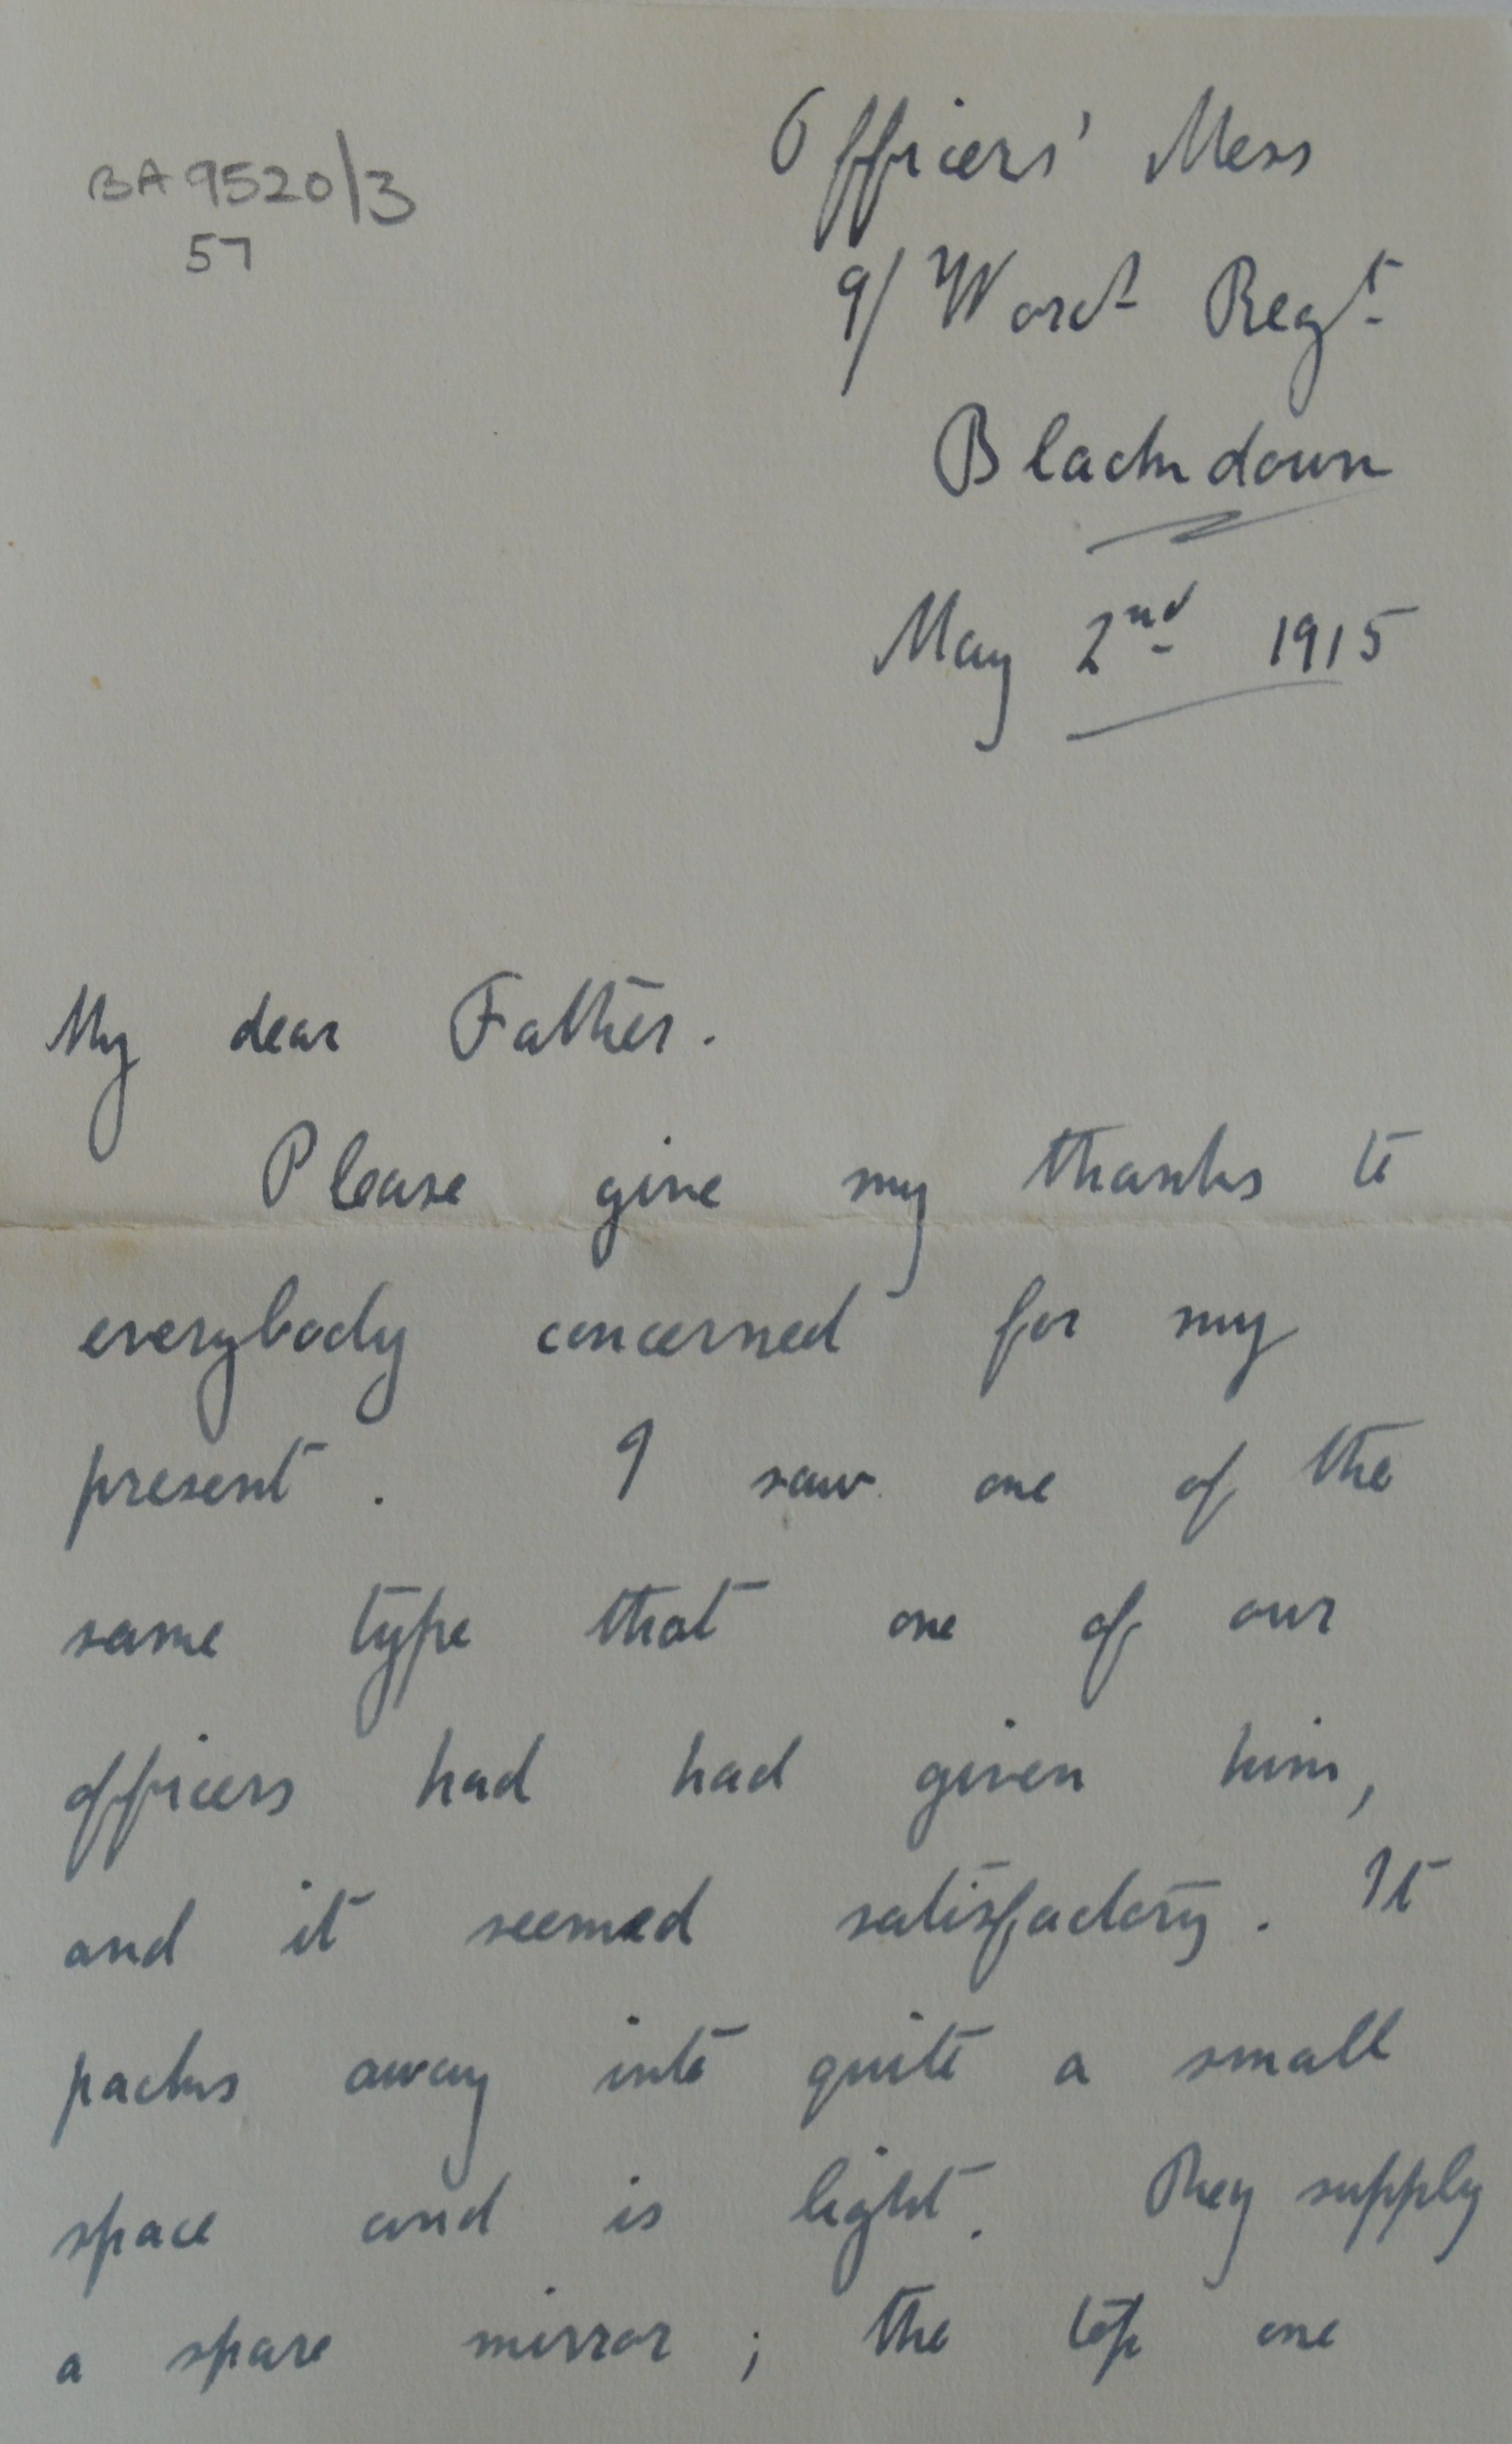 BA 9520/3
57
Officers' Mess
9/ Worct Regt
Blackdown
May 2nd 1915
My dear Father.
Please give my thanks to
everybody concerned for my
present. I saw one of the
same type that one of our
officers had had given him,
and it seemed satisfactory. It
packs away into quite a small
space and is light. They supply
a spare mirror; the top one